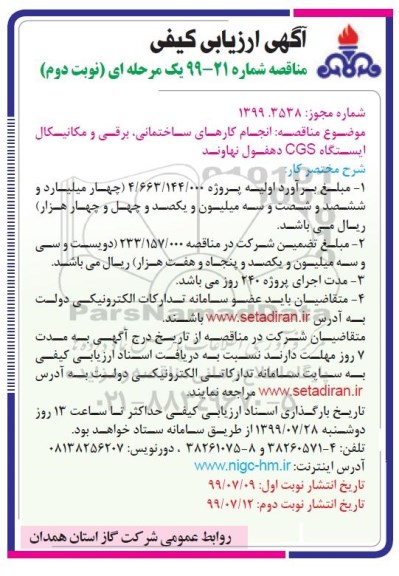 آگهی ارزیابی کیفی
مناقصه شماره ۲۱-۹۹ یک مرحله ای (نوبت دوم)
شماره مجوز: ۳۵۳۸. ۱۳۹۹
موضوع مناقصه: انجام کارهای ساختمانی، برقی و مکانیکال
ایستگاه CGS دهفول نهاوند
شرح مختصر کار:
۱- مبلغ برآورد اولیه پروژه ۴/۶۶۳/۱۴۴/۰۰۰ (چهار میلیارد و
ششصد و شصت و سه میلیون و یکصد و چهل و چهار هزار)
ریال می باشد.
۲- مبلغ تضمین شرکت در مناقصه ۲۳۳/۱۵۷/۰۰۰ (دویست و سی
و سه میلیون و یکصد و پنجاه و هفت هزار) ریال می باشد.
۳- مدت اجرای پروژه ۲۴۰ روز می باشد.
۴- متقاضیان باید عضو سامانه تدارکات الکترونیکی دولت
به آدرس www.setadiran.ir باشند.
متقاضیان شرکت در مناقصه از تاریخ درج آگهی به مدت
۷ روز مهلت دارند نسبت به دریافت اسناد ارزیابی کیفی
به سایت سامانه تدارکاتی الکترونیکی دولت به آدرس
www.setadiran.ir مراجعه نمایند.
تاریخ بارگذاری اسناد ارزیابی کیفی حداکثر تا ساعت ۱۳ روز
دوشنبه ۱۳۹۹/۰۷/۲۸ از طریق سامانه ستاد خواهد بود.
تلفن: ۴-۳۸۲۶۰۵۷۱ و ۸-۳۸۲۶۱۰۷۵ ، دورنویس: ۰۸۱۳۸۲۵۶۲۰۷
آدرس اینترنت: www.nigc-hm.ir
تاریخ انتشار نوبت اول: ۹۹/۰۷/۰۹
تاریخ انتشار نوبت دوم: ۹۹/۰۷/۱۲
روابط عمومی شرکت گاز استان همدان